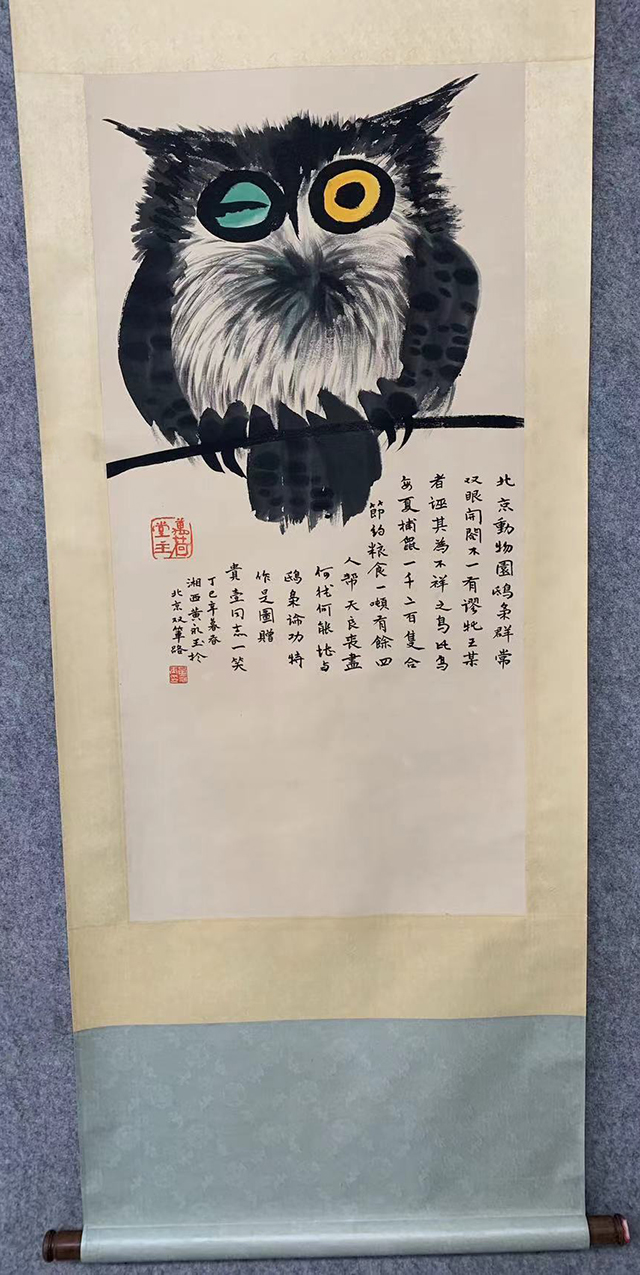 北京動物園鴟梟群常
双眼開閤不一有謬牝王某
者诬其為不祥之鳥此鳥
每夏捕鼠一千二百隻合
節約粮食一噸有餘四
人幫天良喪盡
何何能与
鴟梟論功特
作是圖贈
貴同志一笑
丁巳年暮春
湘西黄永玉於
北京双路
萬荷
堂主